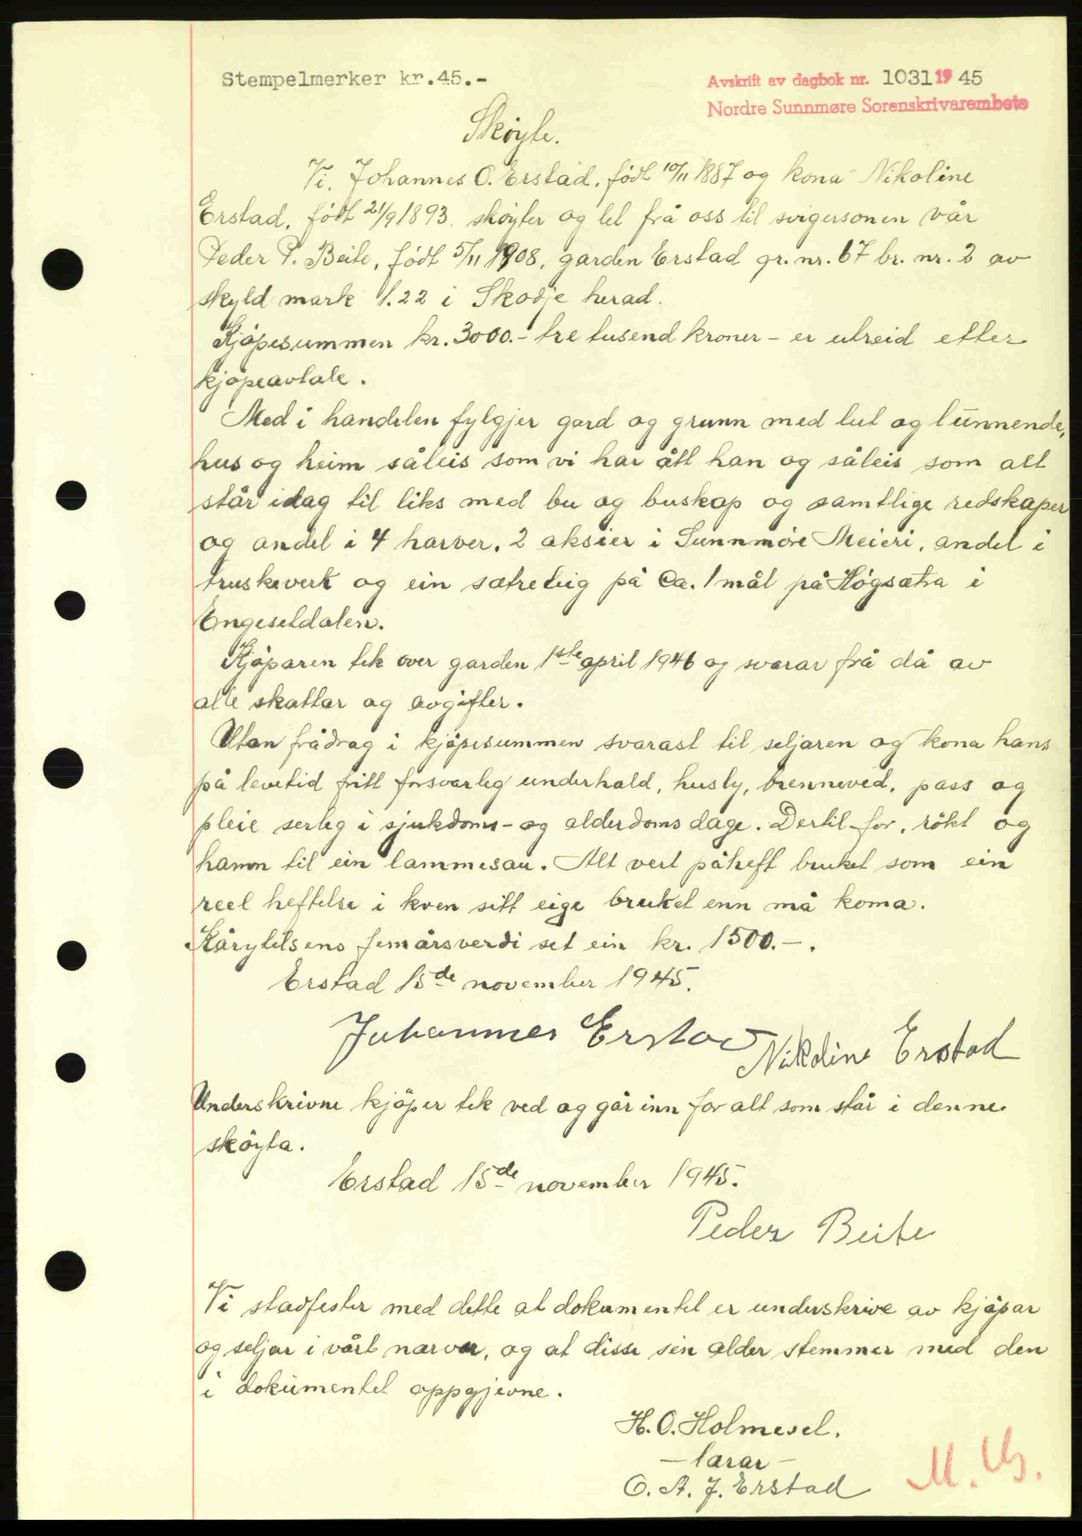 Stempelmerker kr.45.-
Avskrift av dagbok nr. 1031 1945
Nordre Sunnmøre Sorenskrivarembete
Skøyte.
Vi, Johannes O. Erstad, født 10/11 1887 og kona Nikoline
Erstad, født 21/9 1893, skøyter og let frå oss til svigersonen vår
Peder P. Beite, født 5/11 1908, garden Erstad gr. nr. 67 br. nr. 2 av
skyld mark 1.22 i Skodje herad.
Kjøpesummen kr. 3000.- tre tusend kroner - er utreid etter
kjøpeavtale.
Med i handelen fylgjer gard og grunn med lut og lunnende,
hus og heim såleis som vi har ått han og såleis som alt
står idag til liks med bu og buskap og samtlige redskaper
og andel i 4 harver, 2 aksier i Sunnmøre Meieri, andel i
truskeverk og ein sætreteig på Ca. 1 mål på Høgsætra i
Engesetdalen.
Kjøparen tek over garden 1ste april 1946 og svarar frå då av
alle skattar og avgifter.
Utan frådrag i kjøpesummen svarast til seljaren og kona hans
på levetid fritt forsvarleg underhald, husly, brenneved, pass og
pleie serleg i sjukdoms- og alderdoms dage. Dertil for, røkt og
hamn til ein lammesau. Alt vert påheft bruket som ein
reel heftelse i kven sitt eige bruket enn må koma.
Kårytelsens femårsverdi set ein kr. 1500.-.
Erstad 15de november 1945.
Johannes Erstad
Nikoline Erstad
Underskrivne kjøper tek ved og går inn for alt som står i denne
skøyta.
Erstad 15de november 1945.
Peder Beite
Vi stadfester med dette at dokumentet er underskrive av kjøpar
og seljar i vårt nærvær, og at disse sin alder stemmer med den
i dokumentet oppgjevne.
H. O. Holmeset.
- lærar -
O. A. J. Erstad